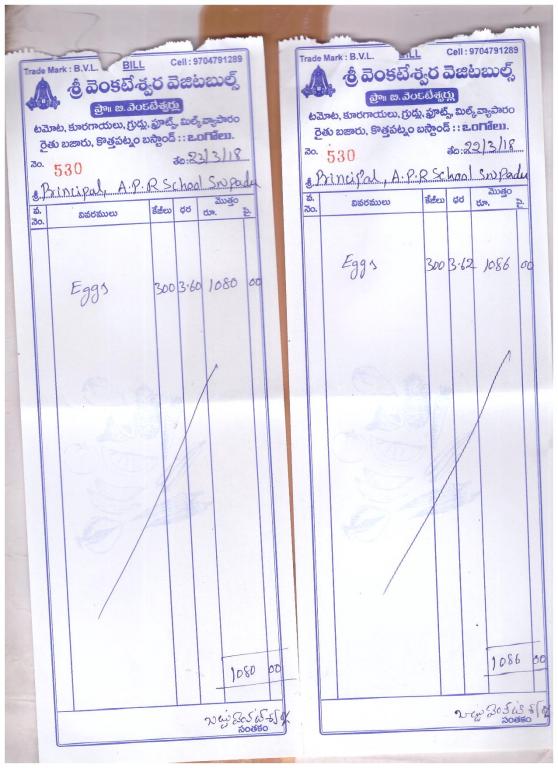 BILL
Trade Mark : B.V.L.
Cell : 9704791289
శ్రీ వెంకటేశ్వర వెజిటబుల్స్
ప్రొ॥ బి. వెంకటేశ్వర్లు
టమోట, కూరగాయలు, గ్రుడ్లు, ఫ్రూట్స్, మిల్క్ వ్యాపారం
రైతు బజారు, కొత్తపట్నం బస్టాండ్ : : ఒంగోలు.
నెం. 530
తేది: 23/3/18
శ్రీ Principal, A.P.R School Snpadu
వ. నెం. వివరములు కేజీలు ధర మొత్తం రూ. పై.
Eggs 300 3.60 1080 00
1080 00
సంతకం
BILL
Trade Mark : B.V.L.
Cell : 9704791289
శ్రీ వెంకటేశ్వర వెజిటబుల్స్
ప్రొ॥ బి. వెంకటేశ్వర్లు
టమోట, కూరగాయలు, గ్రుడ్లు, ఫ్రూట్స్, మిల్క్ వ్యాపారం
రైతు బజారు, కొత్తపట్నం బస్టాండ్ : : ఒంగోలు.
నెం. 530
తేది: 22/3/18
శ్రీ Principal, A.P.R School Snpadu
వ. నెం. వివరములు కేజీలు ధర మొత్తం రూ. పై.
Eggs 300 3.62 1086 00
1086 00
సంతకం